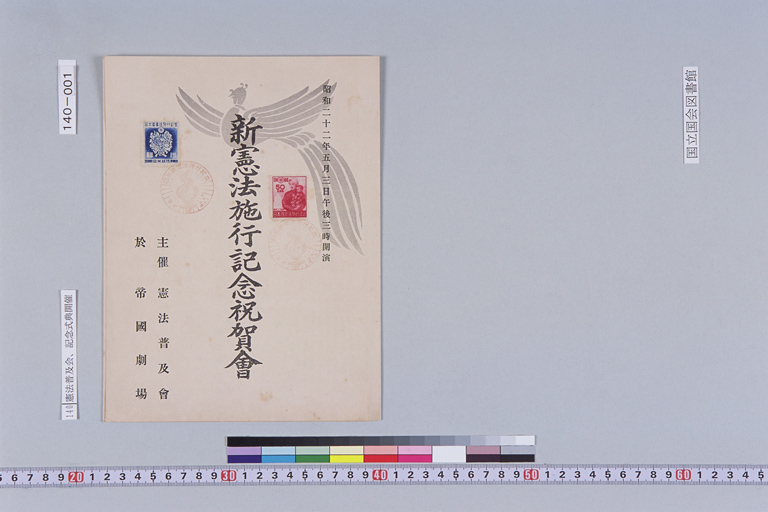 昭和二十二年五月三日午後三時開演
新憲法施行記念祝賀會
主催 憲法普及會
於 帝國劇場
140-001
140 憲法普及会、記念式典開催
国立国会図書館
5 6 7 8 9 20 1 2 3 4 5 6 7 8 9 30 1 2 3 4 5 6 7 8 9 40 1 2 3 4 5 6 7 8 9 50 1 2 3 4 5 6 7 8 9 60 1 2 3 4 5